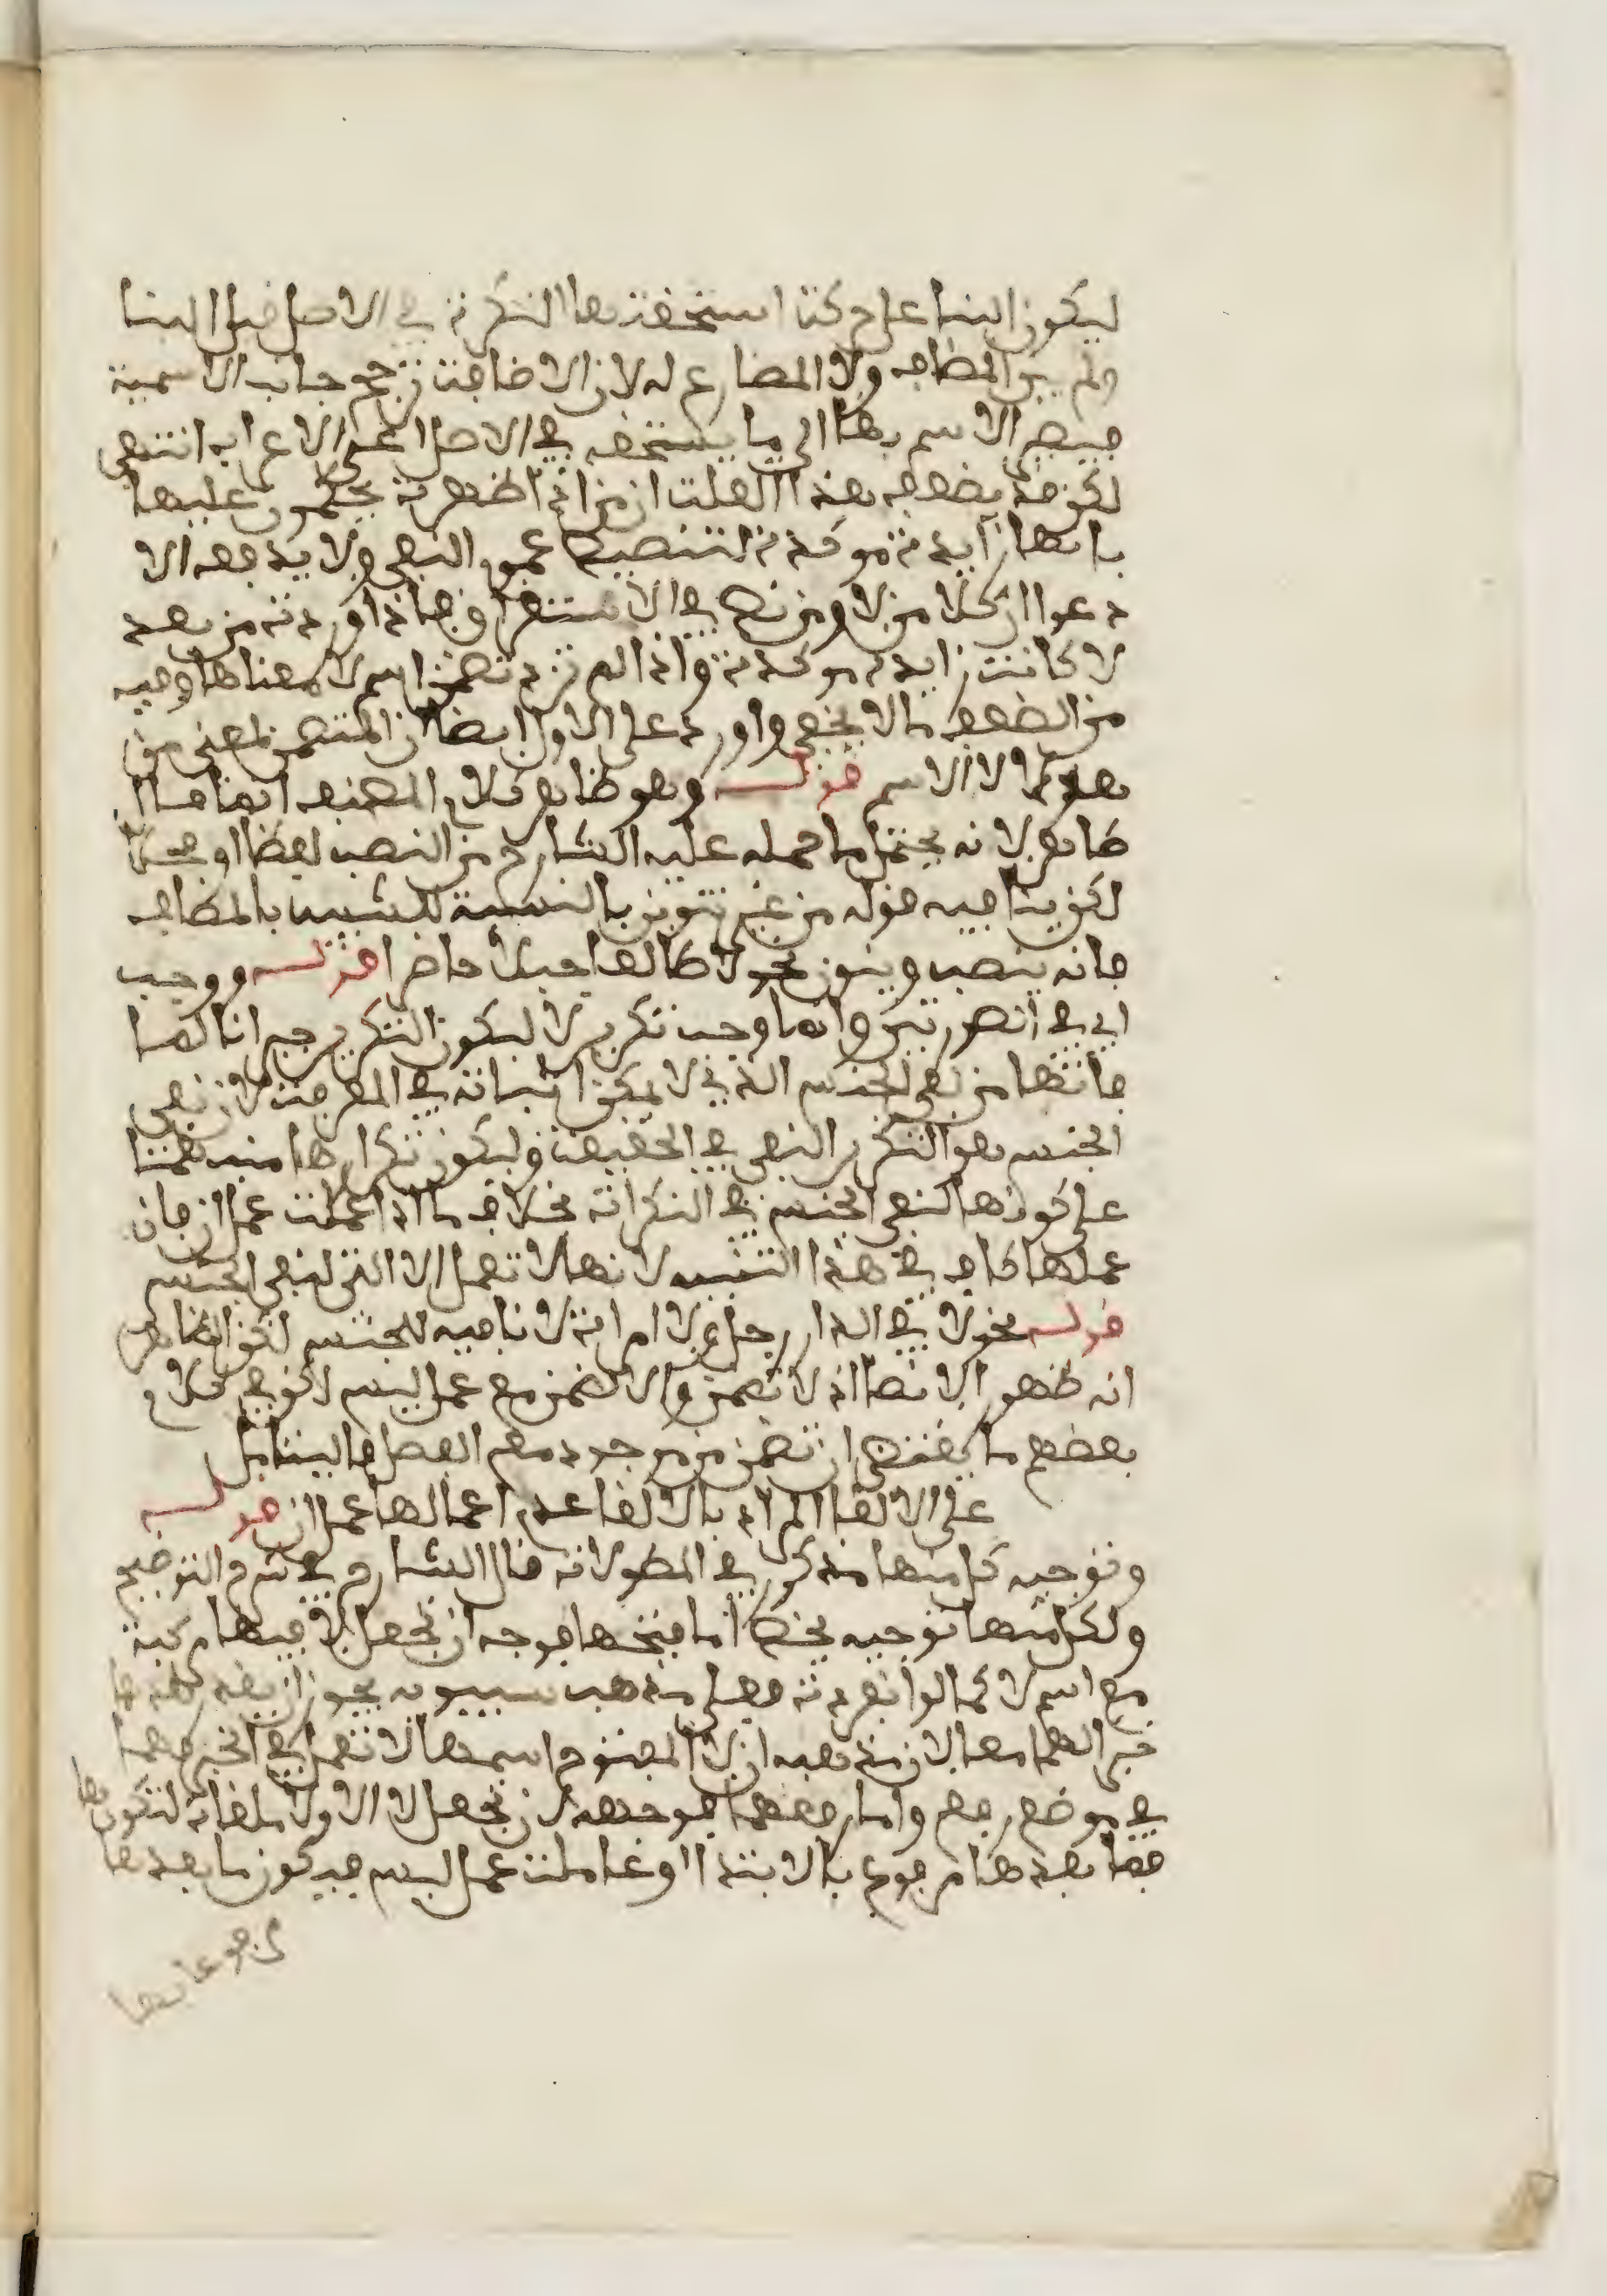 ليكون البنا على حركة استحقتها النكرة في الاصل قبل البنا
ولم يبن المضاف ولا المضارع له لان الاضافة ترجح جانب الاسمية
فيصير الاسم بها الى ما يستحقه في الاصل اعني الاعراب انتهى
لكن قد يضعف هذا العلة ان من اذا ظهرت يحكمون عليها
بانها زايدة موكدة لتنصيص عموم النفي ولا يدفعه الا
دعوا ان كلا من لا ومن نص في الاستغراق فاذا وردت من بعد
لا كانت زايدة موكدة واذا لم ترد تضمن اسم لا معناها وفيه
من الضعف ما لا يخفى واورد على الاول ايضا ان المتضمن لمعنى من
هو لا الاسم قوله وهو ظاهر كلام المصنف انما هذا
ظاهر لانه يحتمل ما حمله عليه الشارح من النصب لفظا او محلا
لكن ينافيه قوله من غير تنوين بالنسبة للشبيه بالمضاف
فانه ينصب وينون نحو لا طالعا جبلا حاضر قوله ووجب
اي في الصورتين وانما وجب تكرير لا ليكون التكرير جبرانا لما
فاتها من نفي الجنس الذي لا يمكن اثباته في المعرفة لان نفي
الجنس هو التكرير النفي في الحقيقة وليكون تكرارها منبهة
على كونها لنفي الجنس في النكرات بخلاف ما اذا عملت عمل ان فان
عملها كاف في هذا التنبيه لانها لا تعمل الا التي لنفي الجنس
قوله نحو لا في الدار رجل ولا امراة لا نافيه للجنس لكن الظاهر
انه ظهور الا نصا اذ لا تضمن والا لتضمن مع عمل ليس لكن في كلام
بعضهم ما يقتضي ان تضمن من موجود مع الفصل فاليتامل
على الالغا المراد بالالغا عدم اعمالها عمل ان قوله
وتوجيه كل منها مذكور في المطولات قال الشارح في شرح التوضيح
ولكل منها توجيه يخصه اما فتحها فوجه ان تجعل لا فيها مركبة
مع اسم لا كما لو انفردت فعلى مذهب سيبويه يجوز ان يقدر بعدها
خبر لهما معا لان مذهبه ان لا المفتوح اسمها لا تعمل في الخبر فهما
في موضع رفع واما رفعهما فوجهه ان تجعل لا الاولى ملغاة لتكرارها
فما بعدها مرفوع بالابتدا او عاملة عمل ليس فيكون ما بعدها